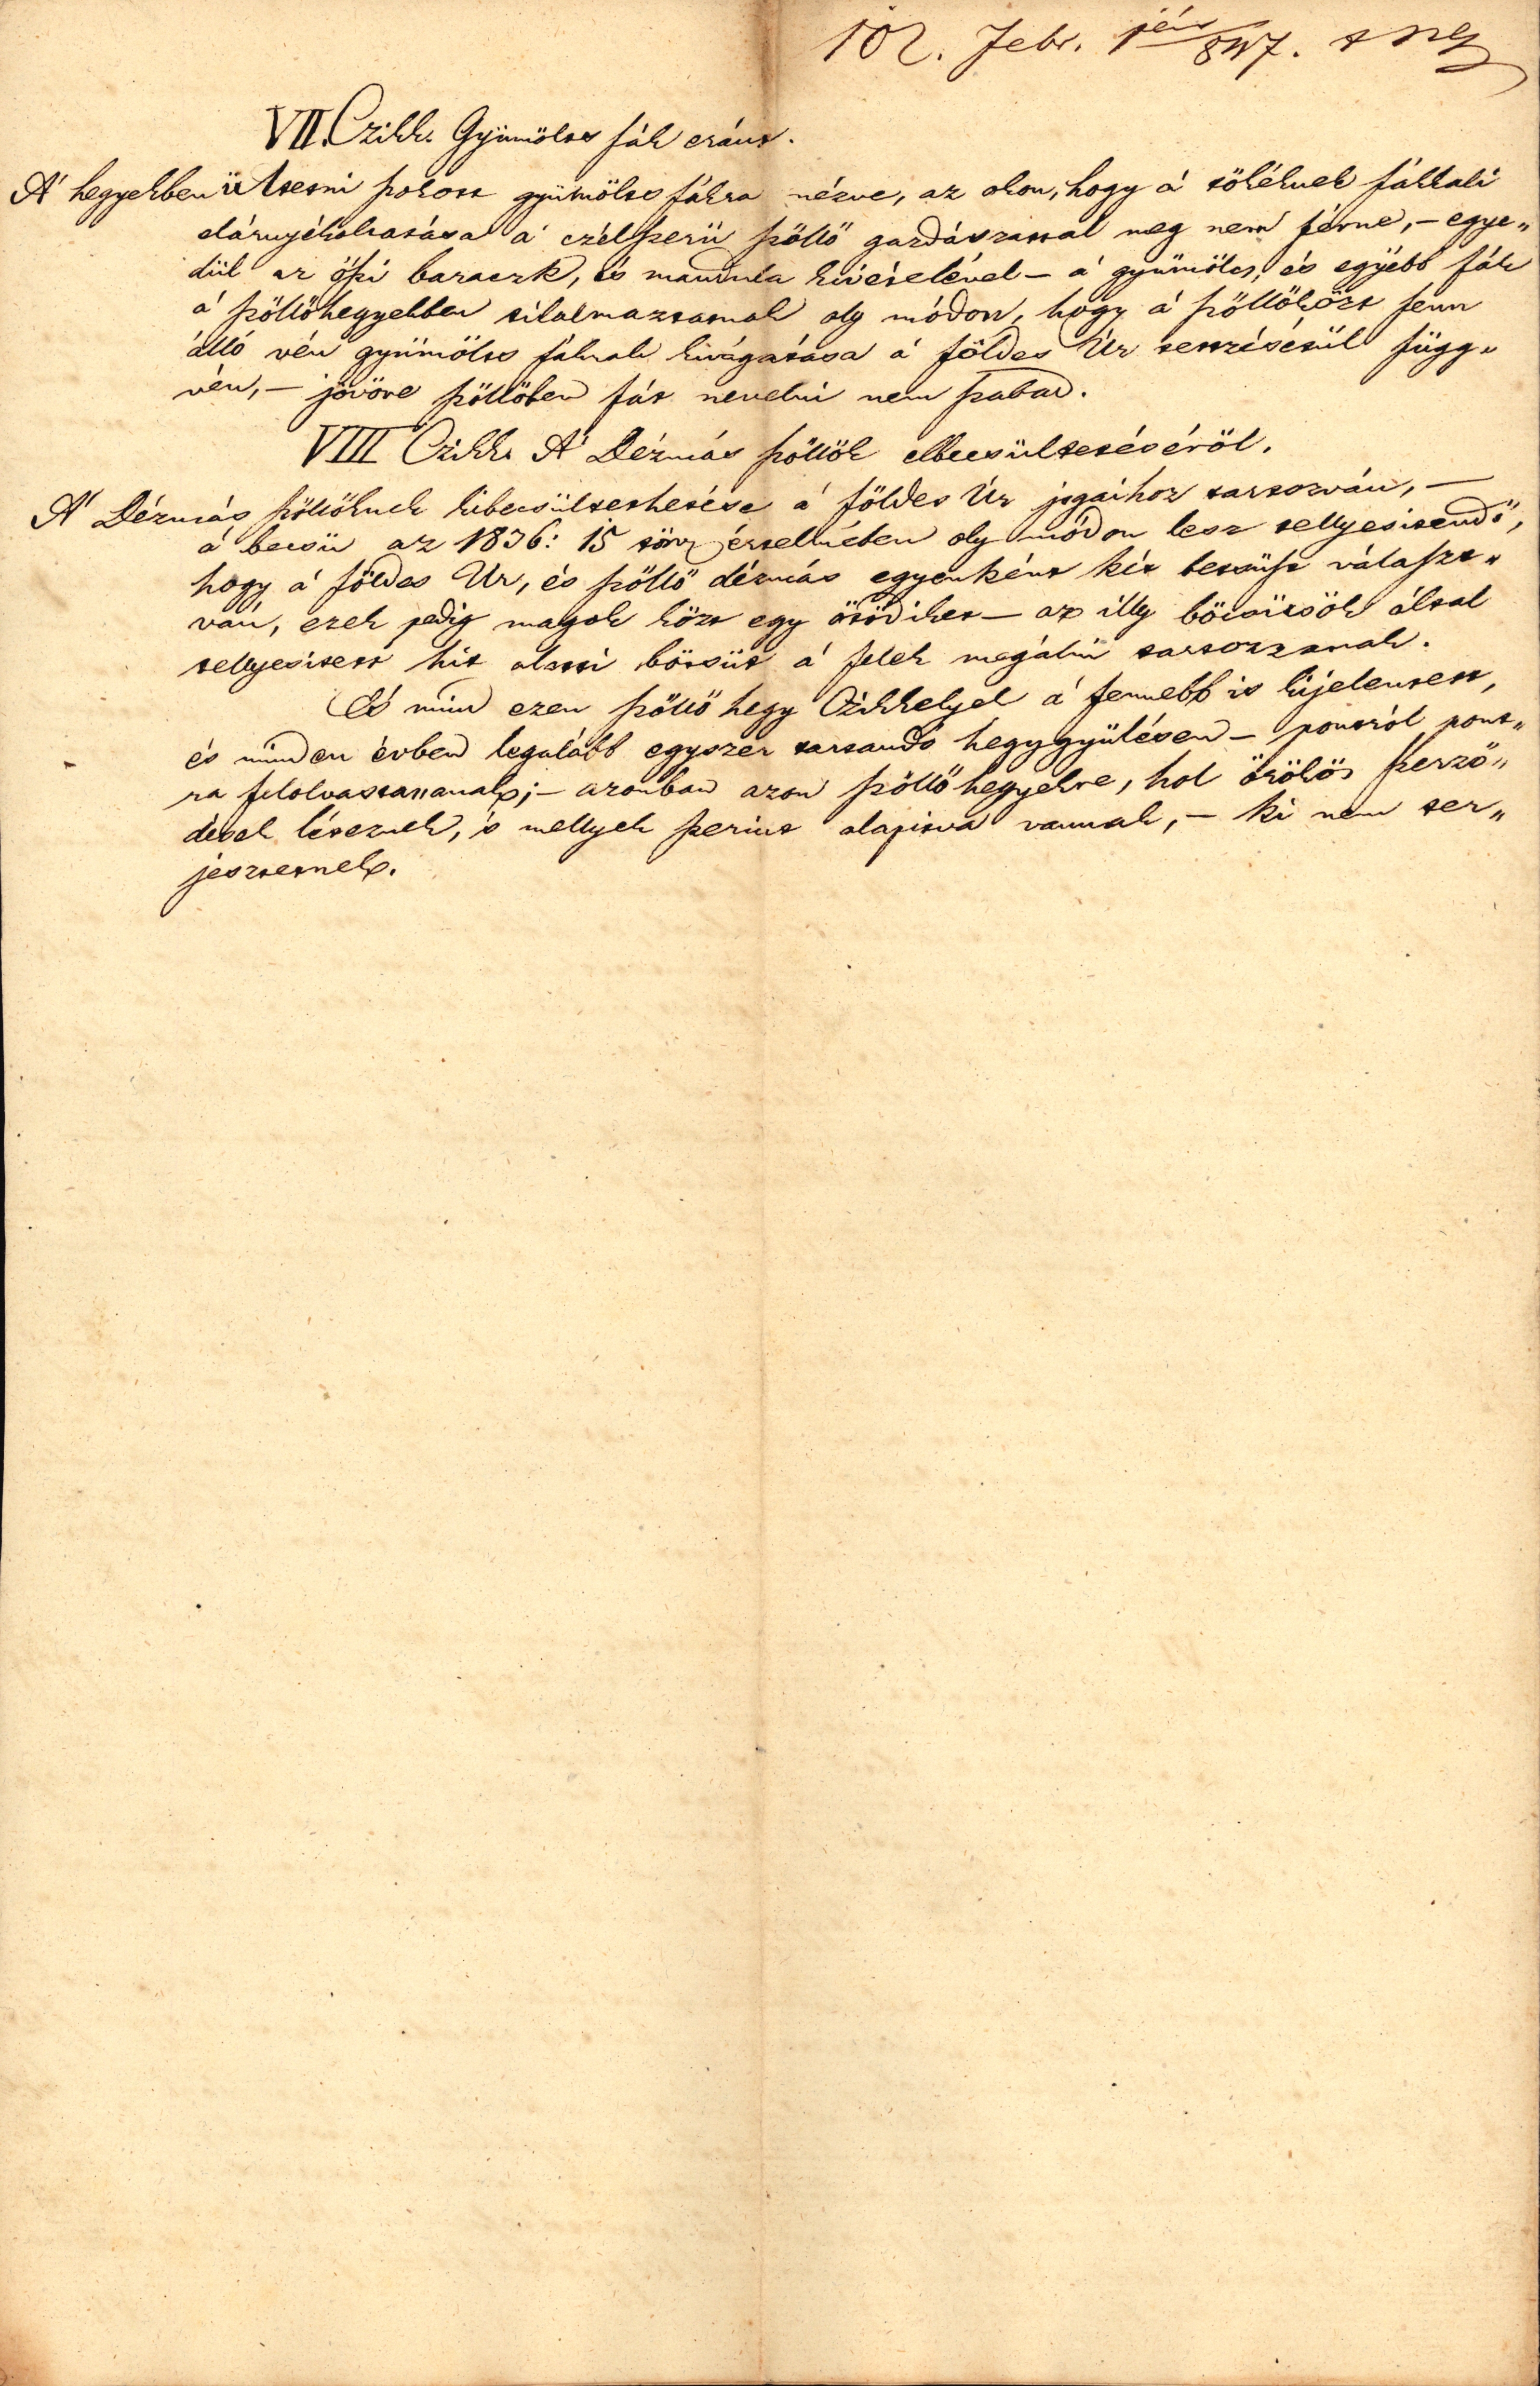 102. Febr. 1jén 847.
VII. Czikk. Gyümölcs fák eránt.
A' hegyekben ültetni szokott gyümölcs fákra nézve, az okon, hogy á tőkéknek fákkali
elárnyékoltatása a' czélszerü szőllő gazdászattal meg nem férne, – egye„
dül az őszi baraczk, és mandula kivételével – á gyümölcs, és egyébb fák
á szőllőhegyekben tilalmaztatnak oly módon, hogy á szőllőközt fenn
álló vén gyümölcs fáknak kivágatása á földes Úr tetszésétül függ„
vén, – jövöre szőllöben fát nevelni nem szabad.
VIII Czikk A' Dézmás szőllők elbecsültetéséröl.
A' Dézmás szőllőknek kibecsültethetése á földes Úr jogaihoz tartozván, –
á becsü az 1836: 15 törv értelmében oly módon lesz tellyesitendő,
hogy á földes Ur, és szőllő dézmás egyenként két becsüst választ„
ván, ezek pedig magok közt egy ötödiket – az illy böcsüsök által
tellyesitett hit alatti böcsüt á felek megálni tartozzanak.
És mind ezen szőllő hegy Czikkelyek á fennebb is kijelentett,
és minden évben legalább egyszer tartandó hegygyülésen – pontról pont„
ra felolvastassanak; – azonban azon szőllő hegyekre, hol örökös szerző„
dések léteznek, 's mellyek szerint alapitva vannak, – ki nem ter„
jesztetnek.